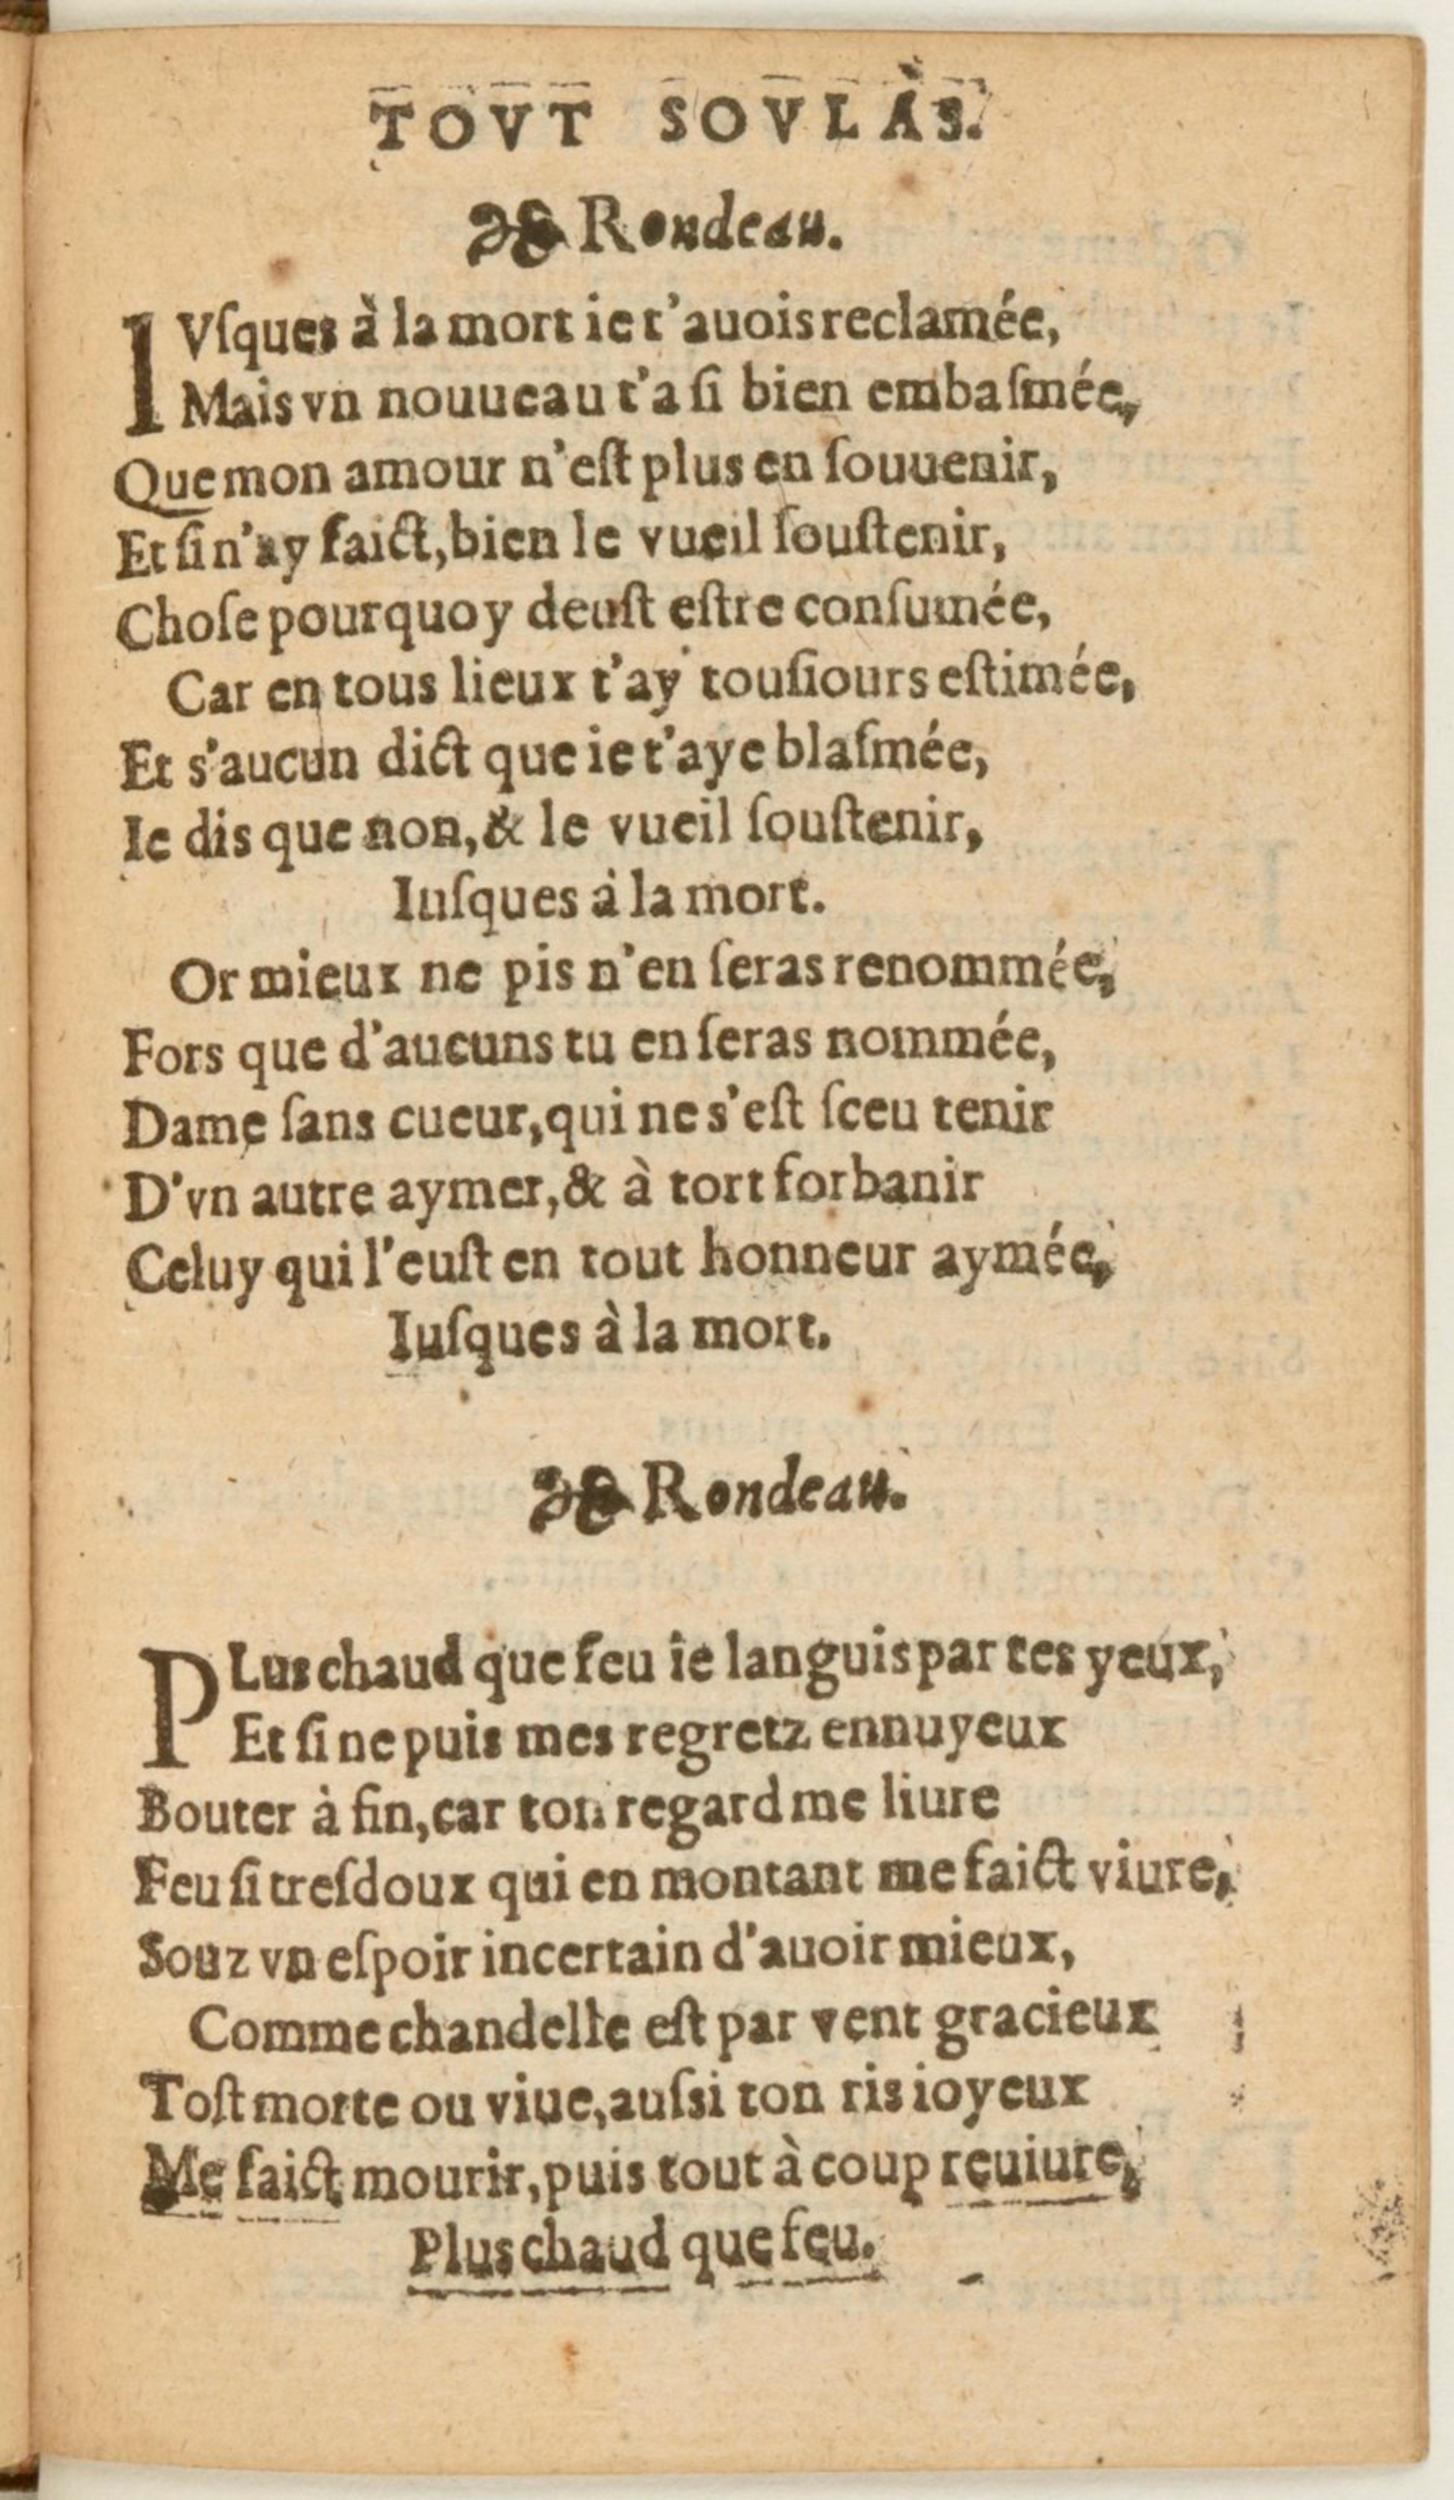 TOVT SOVLAS.
Rondeau.
IVſques à la mort ie t'auois reclamée,
Mais vn nouueau t'a ſi bien embaſmée,
Que mon amour n'eſt plus en ſouuenir,
Et ſi n'ay faict, bien le vueil ſouſtenir,
Choſe pourquoy deuſt eſtre conſumée,
Car en tous lieux t'ay touſiours eſtimée,
Et s'aucun dict que ie t'aye blaſmée,
Ie dis que non, & le vueil ſouſtenir,
Iuſques à la mort.
Or mieux ne pis n'en ſeras renommée,
Fors que d'aucuns tu en ſeras nommée,
Dame ſans cueur, qui ne s'eſt ſceu tenir
D'vn autre aymer, & à tort forbanir
Celuy qui l'euſt en tout honneur aymée,
Iuſques à la mort.
Rondeau.
PLus chaud que feu ie languis par tes yeux,
Et ſi ne puis mes regretz ennuyeux
Bouter à fin, car ton regard me liure
Feu ſi treſdoux qui en montant me faict viure,
Souz vn eſpoir incertain d'auoir mieux,
Comme chandelle eſt par vent gracieux
Toſt morte ou viue, auſsi ton ris ioyeux
Me faict mourir, puis tout à coup reuiure,
Plus chaud que feu.